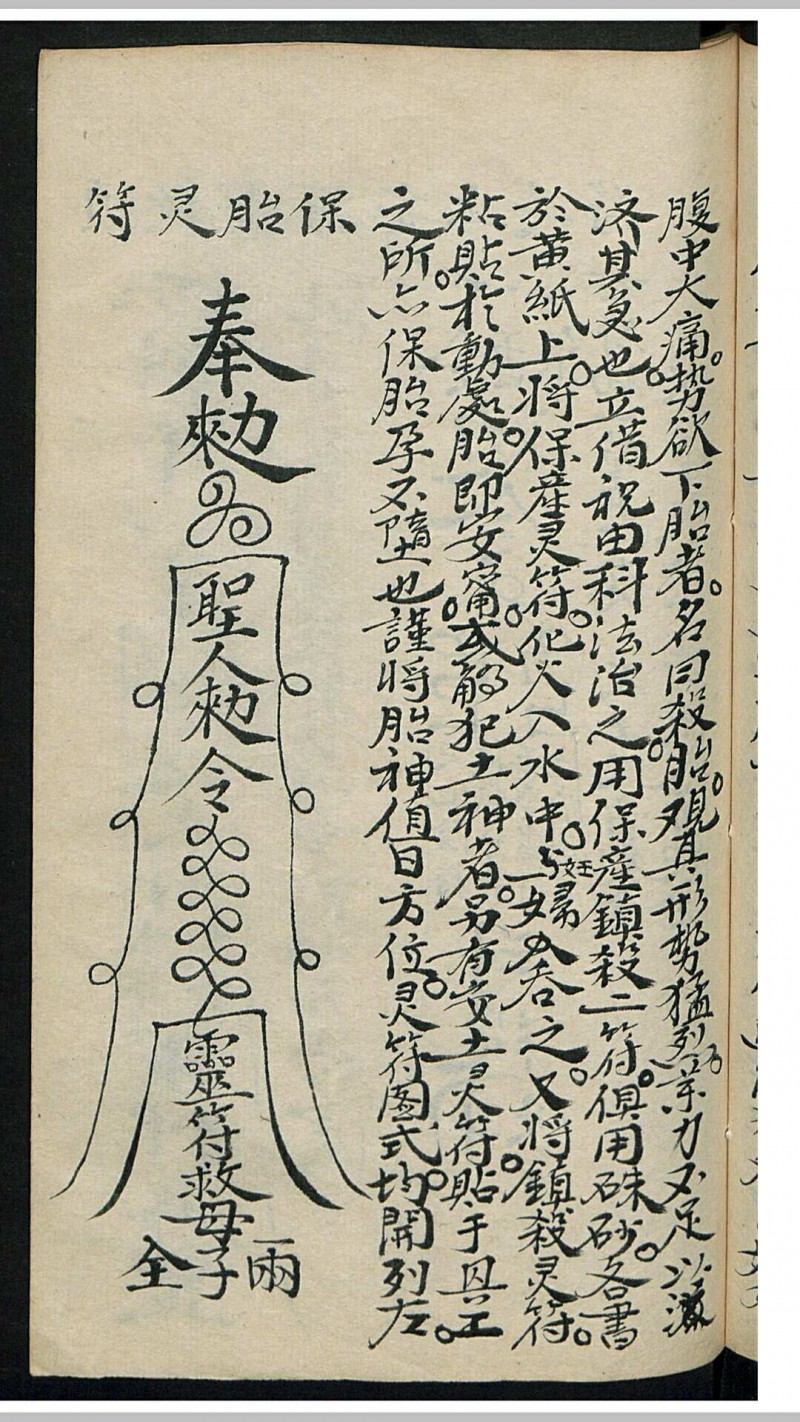 腹中大痛。势欲下胎者。名曰殺胎。観其形勢猛烈。药力不足以濟
济其急也。立借祝由科法治之。用保産鎮殺二符。俱用硃砂。各書
於黄紙上。将保産灵符。化火入水中。与妊婦吞之。又将鎮殺灵符。
粘貼於動處。胎即安甯。或觸犯土神者。另有安土灵符。貼于興工
之所。亦保胎孕不墮也。謹将胎神值日方位。灵符图式。均開列左。
保胎灵符
奉勅
聖人勅令
靈巫符救母子兩全